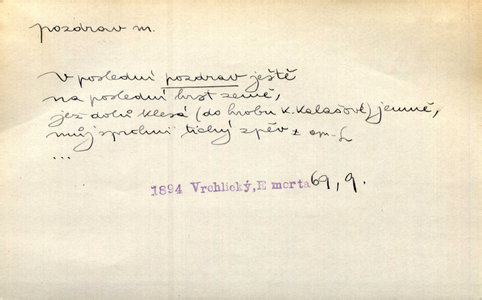 pozdrav m.
V poslední pozdrav ještě
na poslední hrst země,
jež dolů klesá (do hrobu K. Kalašové) jemně,
můj tichý zpěv ± om-L
...
1894 Vrchlický, E morta 69, 9.